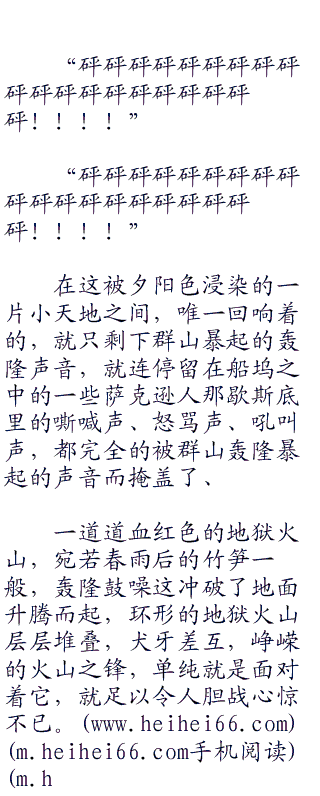 “砰砰砰砰砰砰砰砰砰
砰砰砰砰砰砰砰砰砰砰
砰！！！！”
“砰砰砰砰砰砰砰砰砰
砰砰砰砰砰砰砰砰砰砰
砰！！！！”
在这被夕阳色浸染的一
片小天地之间，唯一回响着
的，就只剩下群山暴起的轰
隆声音，就连停留在船坞之
中的一些萨克逊人那歇斯底
里的嘶喊声、怒骂声、吼叫
声，都完全的被群山轰隆暴
起的声音而掩盖了、
一道道血红色的地狱火
山，宛若春雨后的竹笋一
般，轰隆鼓噪这冲破了地面
升腾而起，环形的地狱火山
层层堆叠，犬牙差互，峥嵘
的火山之锋，单纯就是面对
着它，就足以令人胆战心惊
不已。(www.heihei66.com)
(m.heihei66.com手机阅读)
(m.h